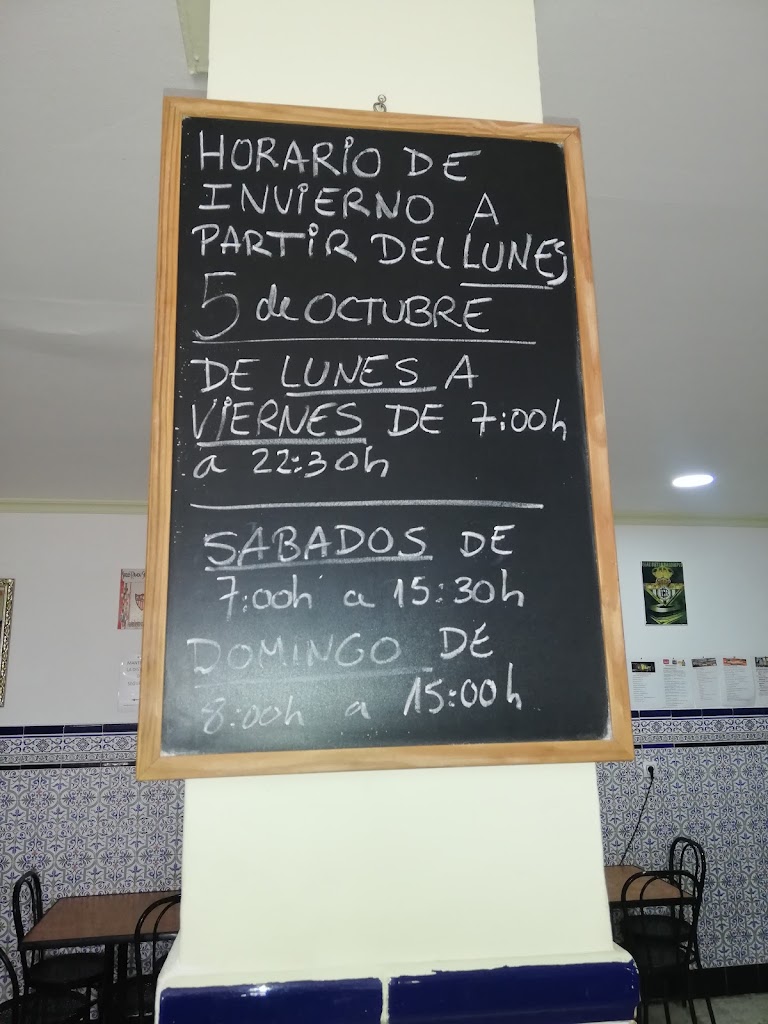 HORARIO DE
INVIERNO A
PARTIR DEL LUNES
5 de OCTUBRE
DE LUNES A
VIERNES DE 7:00h
a 22:30h
SABADOS DE
7:00h a 15:30h
DOMINGO DE
8:00h a 15:00h